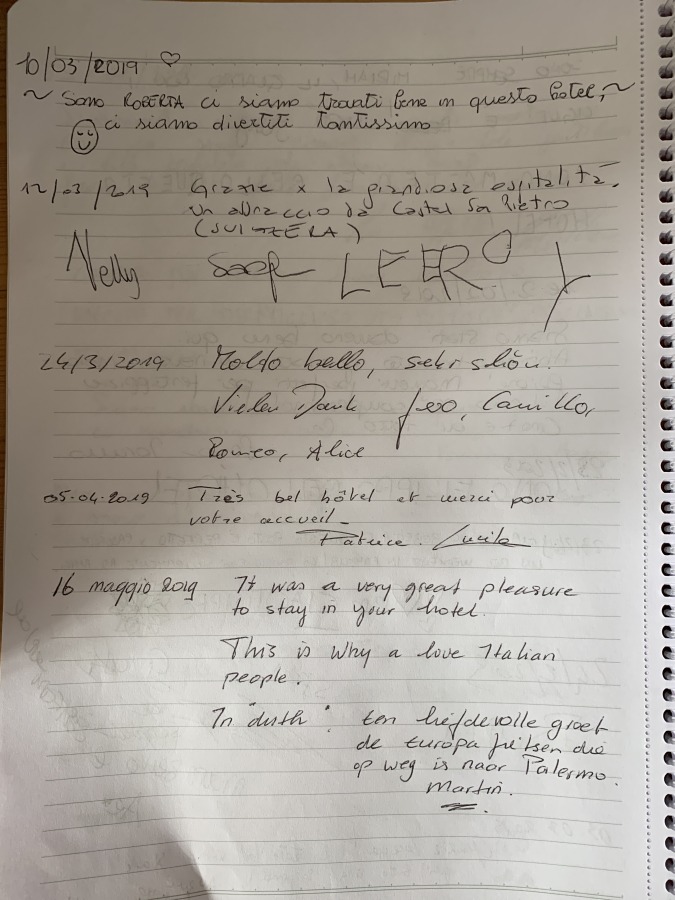 10/03/2019 ♡
~ Sono ROBERTA ci siamo trovati bene in questo hotel, ~
ci siamo divertiti tantissimo
12/03/2019 Grazie x la grandiosa ospitalità.
un abbraccio da Castel San Pietro
(SVIZZERA)
Nelly LEEROY
24/3/2019 Moldo bello, sehr shön.
Vielen Dank Jeoo, Camillo,
Romeo, Alice
05-04-2019 Très bel hôtel et merci pour
votre accueil_
Patrice. Lucile
16 maggio 2019 It was a very great pleasure
to stay in your hotel.
This is why a love Italian
people.
In "duth": Een liefdevolle groet
de Europa fietser die
op weg is naar Palermo.
Martin.